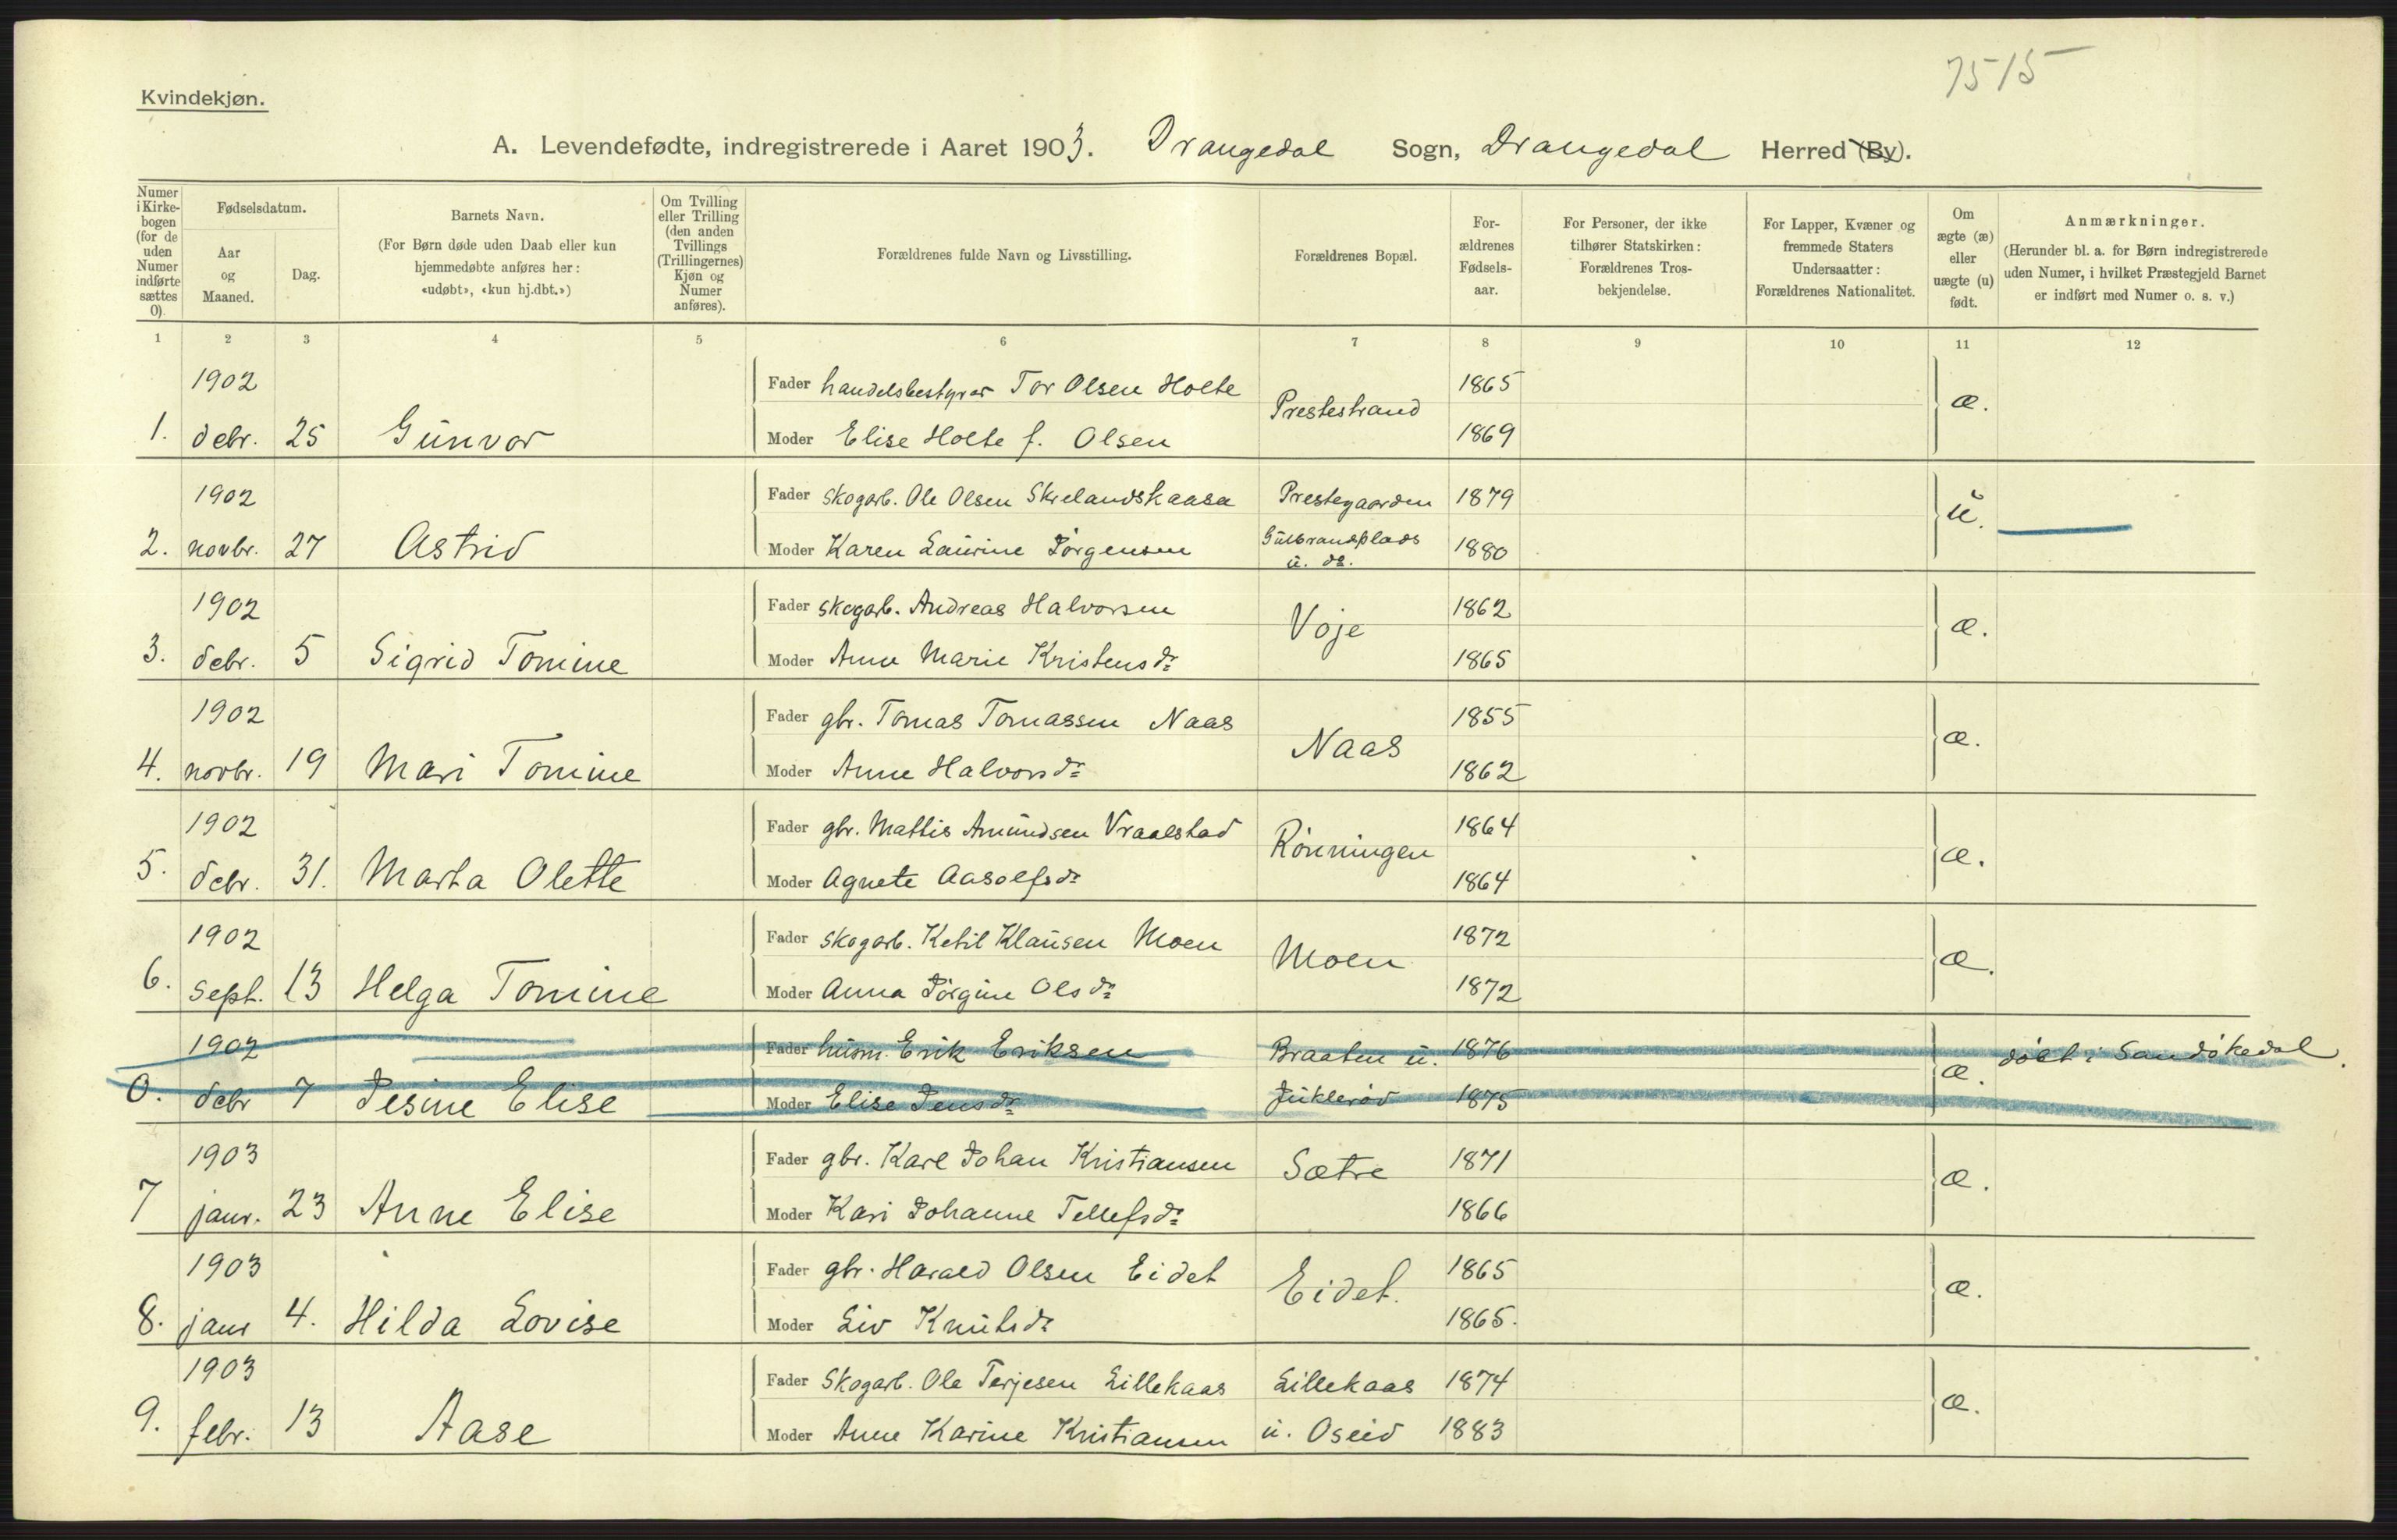 7515
Kvindekjøn.
A. Levendefødte, indregistrerede i Aaret 1903. Drangedal Sogn, Drangedal Herred (By).
Numer i Kirke-bogen (for de uden Numer indførte sættes 0).
Fødselsdatum.
Aar og Maaned.
Dag.
Barnets Navn.
(For Børn døde uden Daab eller kun hjemmedøbte anføres her: «udøbt», «kun hj.dbt.»)
Om Tvilling eller Trilling (den anden Tvillings (Trillingernes) Kjøn og Numer anføres).
Forældrenes fulde Navn og Livsstilling.
Forældrenes Bopæl.
For-ældrenes Fødsels-aar.
For Personer, der ikke tilhører Statskirken: Forældrenes Tros-bekjendelse.
For Lapper, Kvæner og fremmede Staters Undersaatter: Forældrenes Nationalitet.
Om ægte (æ) eller uægte (u) født.
Anmærkninger.
(Herunder bl. a. for Børn indregistrerede uden Numer, i hvilket Præstegjeld Barnet er indført med Numer o. s. v.)
1 2 3 4 5 6 7 8 9 10 11 12
1902 Fader handelsbestyrer Tor Olsen Holte Prestestrand 1865 æ.
1. debr. 25 Gunvor Moder Elise Holte f. Olsen 1869
1902 Fader skogarb. Ole Olsen Skrelandskaasa Prestegaarden 1879 u.
2. novbr. 27 Astrid Moder Karen Laurine Jørgensen Gulbrandsplads u. do. 1880
1902 Fader skogarb. Andreas Halvorsen Voje 1862 æ.
3. debr. 5 Sigrid Tomine Moder Anne Marie Kristensdr 1865
1902 Fader gbr. Tomas Tomassen Naas Naas 1855 æ.
4. novbr. 19 Mari Tomine Moder Anne Halvorsdr 1862
1902 Fader gbr. Mattis Amundsen Vraalstad Rønningen 1864 æ.
5. debr. 31. Marta Olette Moder Agnete Aasolfsdr 1864
1902 Fader skogarb. Ketil Klausen Moen Moen 1872 æ.
6. sept. 13 Helga Tomine Moder Anna Jørgine Olsdr 1872
1902 Fader husm. Erik Eriksen Braaten u. 1876 æ. døbt i Sandøkedal.
0. debr 7 Jesine Elise Moder Elise Jensdr Juklerød 1875
1903 Fader gbr. Karl Johan Kristiansen Sætre 1871 æ.
7 janr. 23 Anne Elise Moder Kari Johanne Tellefsdr 1866
1903 Fader gbr. Harald Olsen Eidet Eidet. 1865 æ.
8. janr 4. Hilda Lovise Moder Liv Knutsdr 1865.
1903 Fader Skogarb. Ole Terjesen Lillekaas Lillekaas 1874 æ.
9. febr. 13 Aase Moder Anne Karine Kristiansen u. Oseid 1883